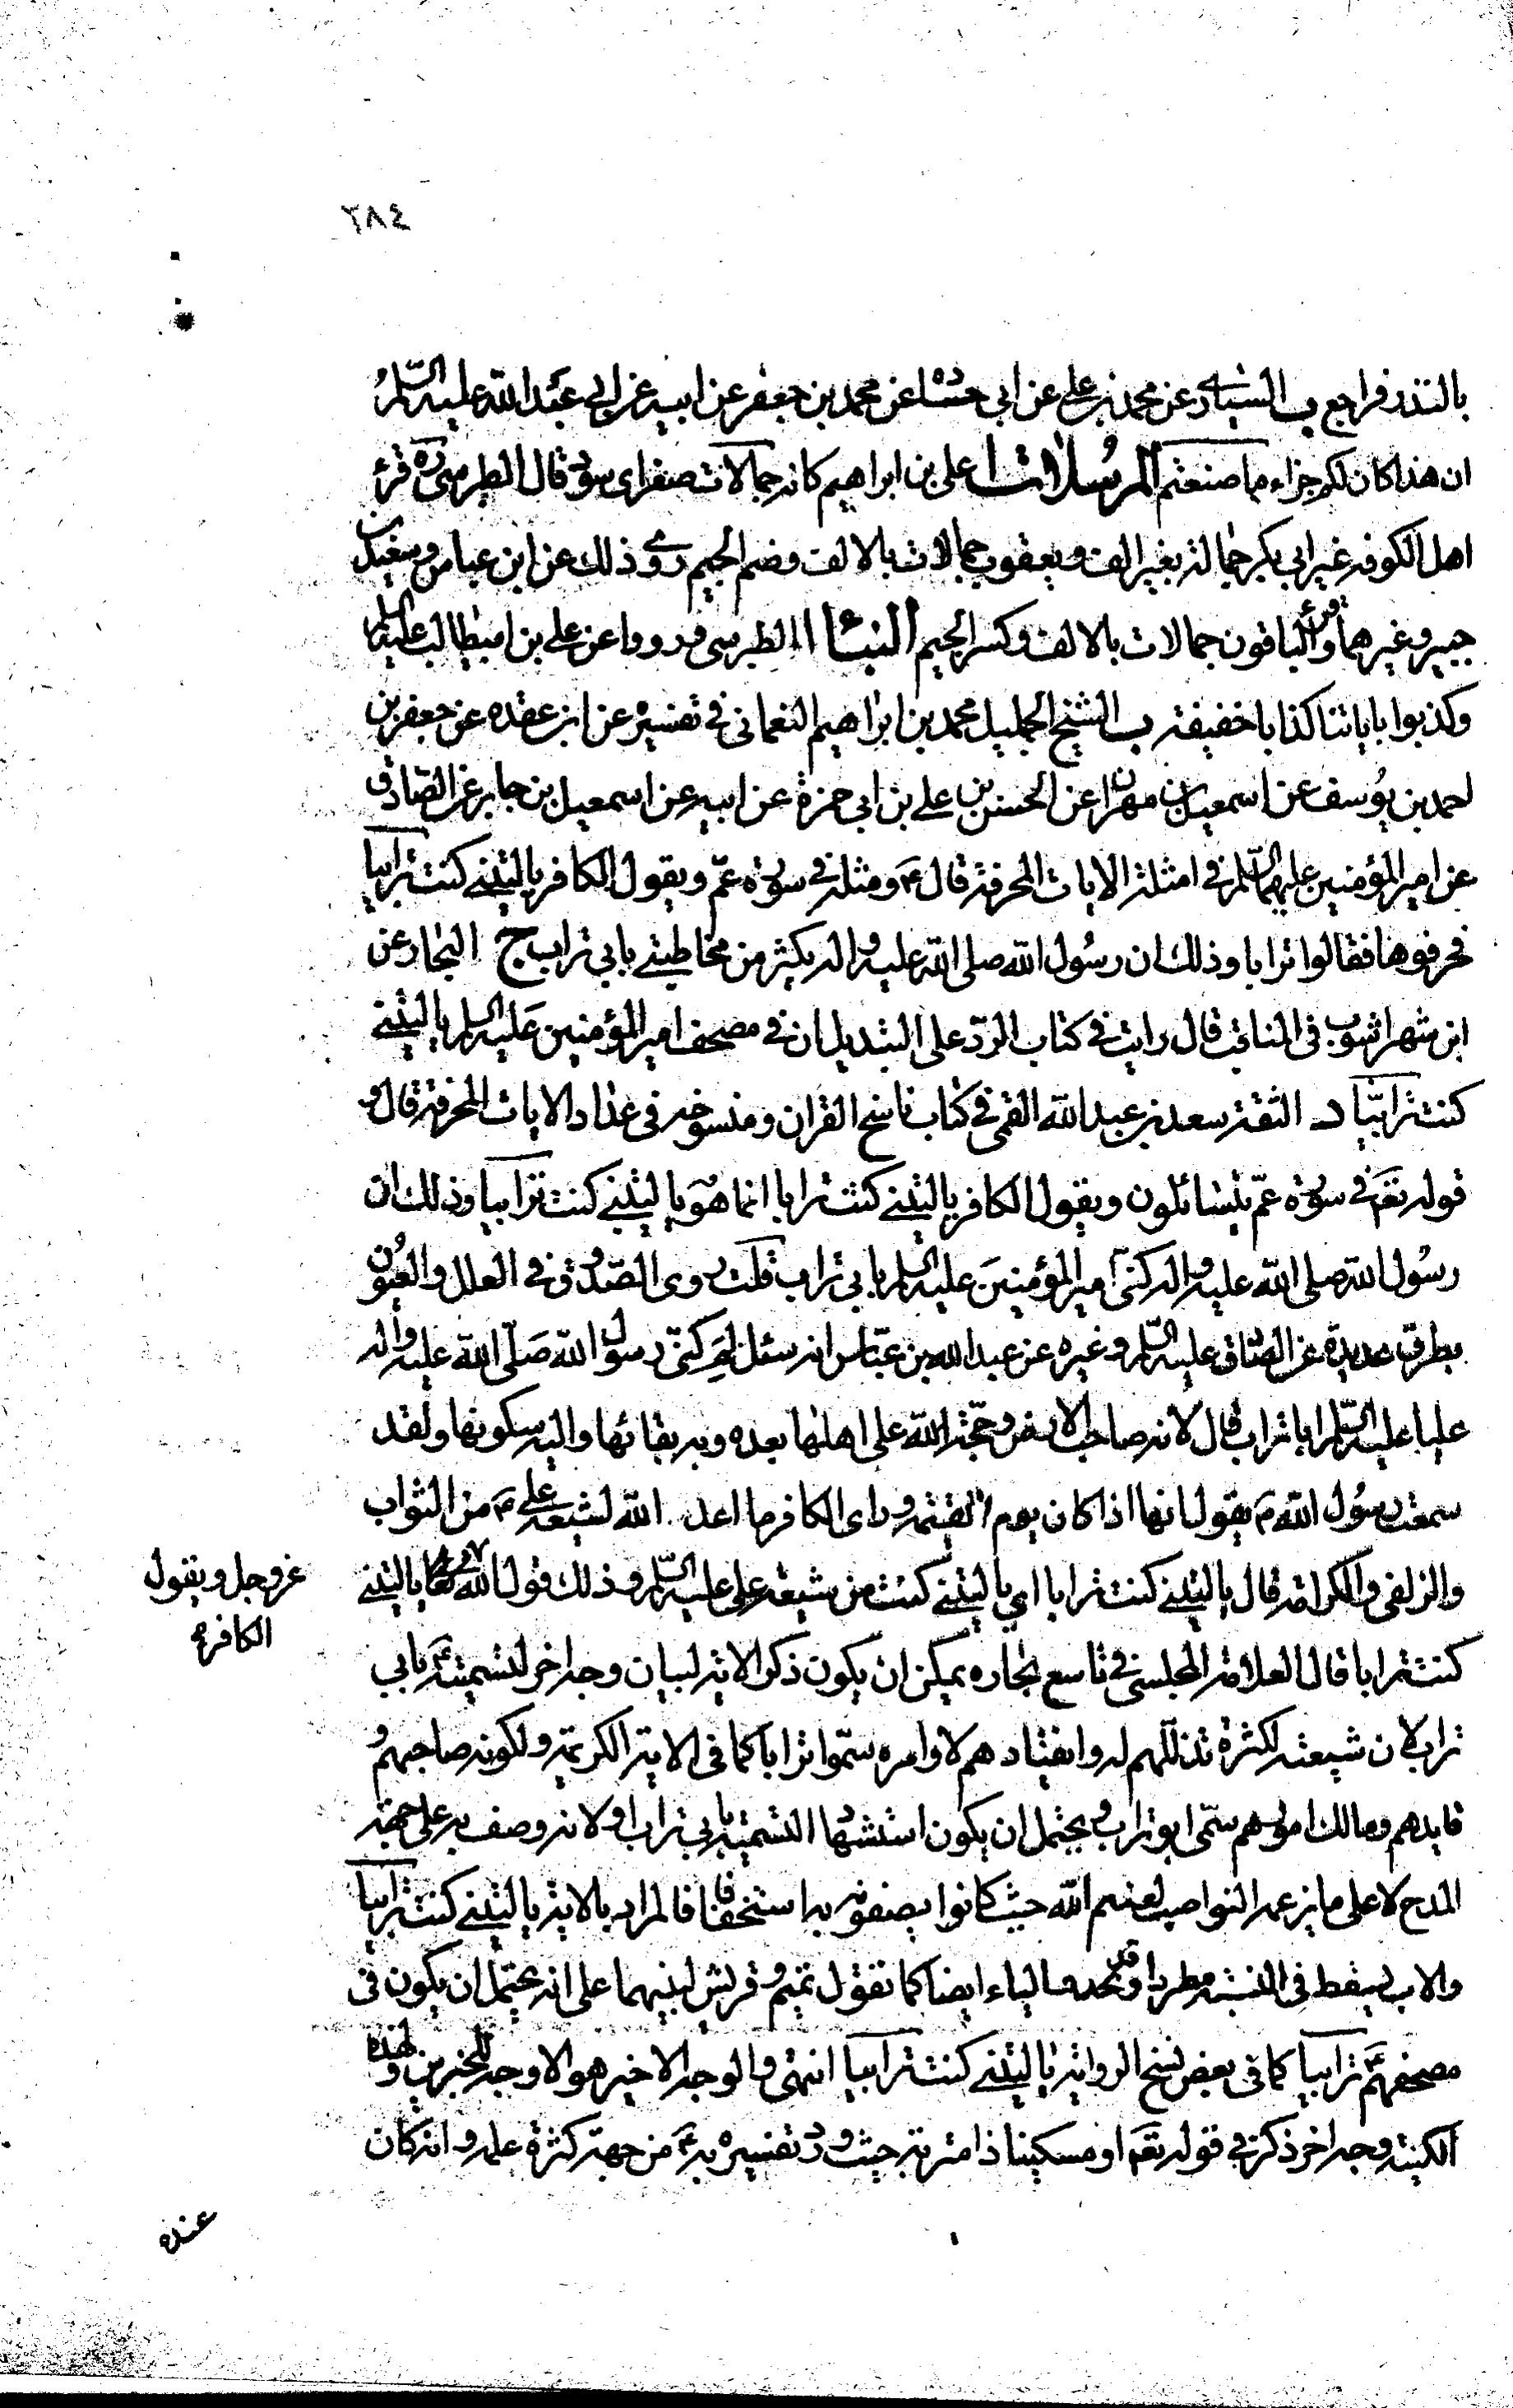 ٢٨٤
بالنذر فراجع ب السياري عن محمد بن علي عن ابي جنادة عن محمد بن جعفر عن ابيه عن ابي عبد الله عليه السلم
ان هذا كان لكم جزاء ما صنعتم المرسلات ا علي بن ابراهيم كانه جمالات صفر اى سود قال الطبرسى ره قرء
اهل الكوفة غير ابى بكر جمالة بغير الف ويعقوب جمالات بالالف وضم الجيم روى ذلك عن ابن عباس وسعيد بن
جبير وغيرهما وقرء الباقون جمالات بالالف وكسر الجيم النبأ ا الطبرسى ورووا عن على بن ابيطالب عليه السلم
وكذبوا باياتنا كذابا خفيفة ب الشيخ الجليل محمد بن ابراهيم النعمانى فى تفسيره عن ابن عقده عن جعفر بن
احمد بن يوسف عن اسمعيل بن مهران عن الحسن بن على بن ابى حمزة عن ابيه عن اسمعيل بن جابر عن الصادق
عن امير المؤمنين عليهما السلم فى امثلة الايات المحرفة قال ع ومثله فى سورة عمّ ويقول الكافر ياليتنى كنت ترابيا
فحرفوها فقالوا ترابا وذلك ان رسول الله صلى الله عليه واله يكثر من مخاطبتى بابى تراب ج البحار عن
ابن شهراشوب فى المناقب قال رايت فى كتاب الردّ على التبديل ان فى مصحف امير المؤمنين عليه السلم ياليتنى
كنت ترابيّا د الثقة سعد بن عبد الله القمى فى كتاب ناسخ القران ومنسوخه فى عداد الايات المحرفة قال و
قوله تعم فى سورة عمّ يتسائلون ويقول الكافر ياليتنى كنت ترابا انما هو ياليتنى كنت ترابيا وذلك ان
رسول الله صلى الله عليه واله كنى امير المؤمنين عليه السلم بابى تراب قلت روى الصدوق فى العلل والعيون
بطرق عديدة عن الصادق عليه السلم وغيره عن عبد الله بن عبّاس انه سئل لِمَ كنى رسول الله صَلّى الله عليه واله
عليا عليه السّلم ابا تراب قال لانه صاحب الارض وحجّة الله على اهلها بعده وبه بقائها واليه سكونها ولقد
سمعت رسول الله ص يقول انها اذا كان يوم القيمة وراى الكافر ما اعد الله لشيعة على ع من الثواب
والزلفى والكرامة قال ياليتنى كنت ترابا اى ياليتنى كنت من شيعة على عليه السّلم وذلك قول الله ياليتنى
عزوجل ويقول
الكافر
كنت ترابا قال العلامة المجلسى فى تاسع بحاره يمكن ان يكون ذكر الاية لبيان وجه اخر لتسميته ع بابى
تراب لان شيعته لكثرة تذللهم له وانقيادهم لاوامره سمّوا ترابا كما فى الاية الكريمة ولكونه صاحبهم و
قايدهم ومالك امورهم سمّى ابو تراب ويحتمل ان يكون استشهادا لتسميته بابى تراب او لانه وصف به على جهة
المدح لا على ما يزعمه النواصب لعنهم الله حيث كانوا يصفونه به استخفافا فالمراد بالاية ياليتنى كنت ترابيا
والاب يسقط فى النسبة مطردا وقد تحذف الياء ايضا كما تقول تميم وقريش لبنيهما على انه يحتمل ان يكون فى
مصحفهم ع ترابيا كما فى بعض نسخ الرواية ياليتنى كنت ترابيا انتهى والوجه الاخير هو الاوجه للخبرين ولهذه
الكنية وجه اخر ذكر فى قوله تعم او مسكينا ذا متربة حيث ورد تفسيره به ع من جهة كثرة علمه وانه كان
عنده